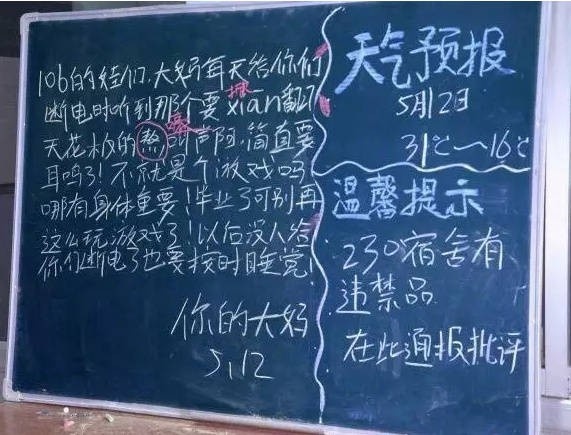 106的娃们,大妈每天给你们
断电时听到那个要xian翻了
掀
天花板的熬叫声阿,简直要
嗷
耳鸣了!不就是个游戏吗?
哪有身体重要!毕业了可别再
这么玩游戏了!以后没人给
你们断电了也要按时睡觉!
你的大妈
5.12
天气预报
5月12日
31℃~16℃
温馨提示
230宿舍有
违禁品
在此通报批评